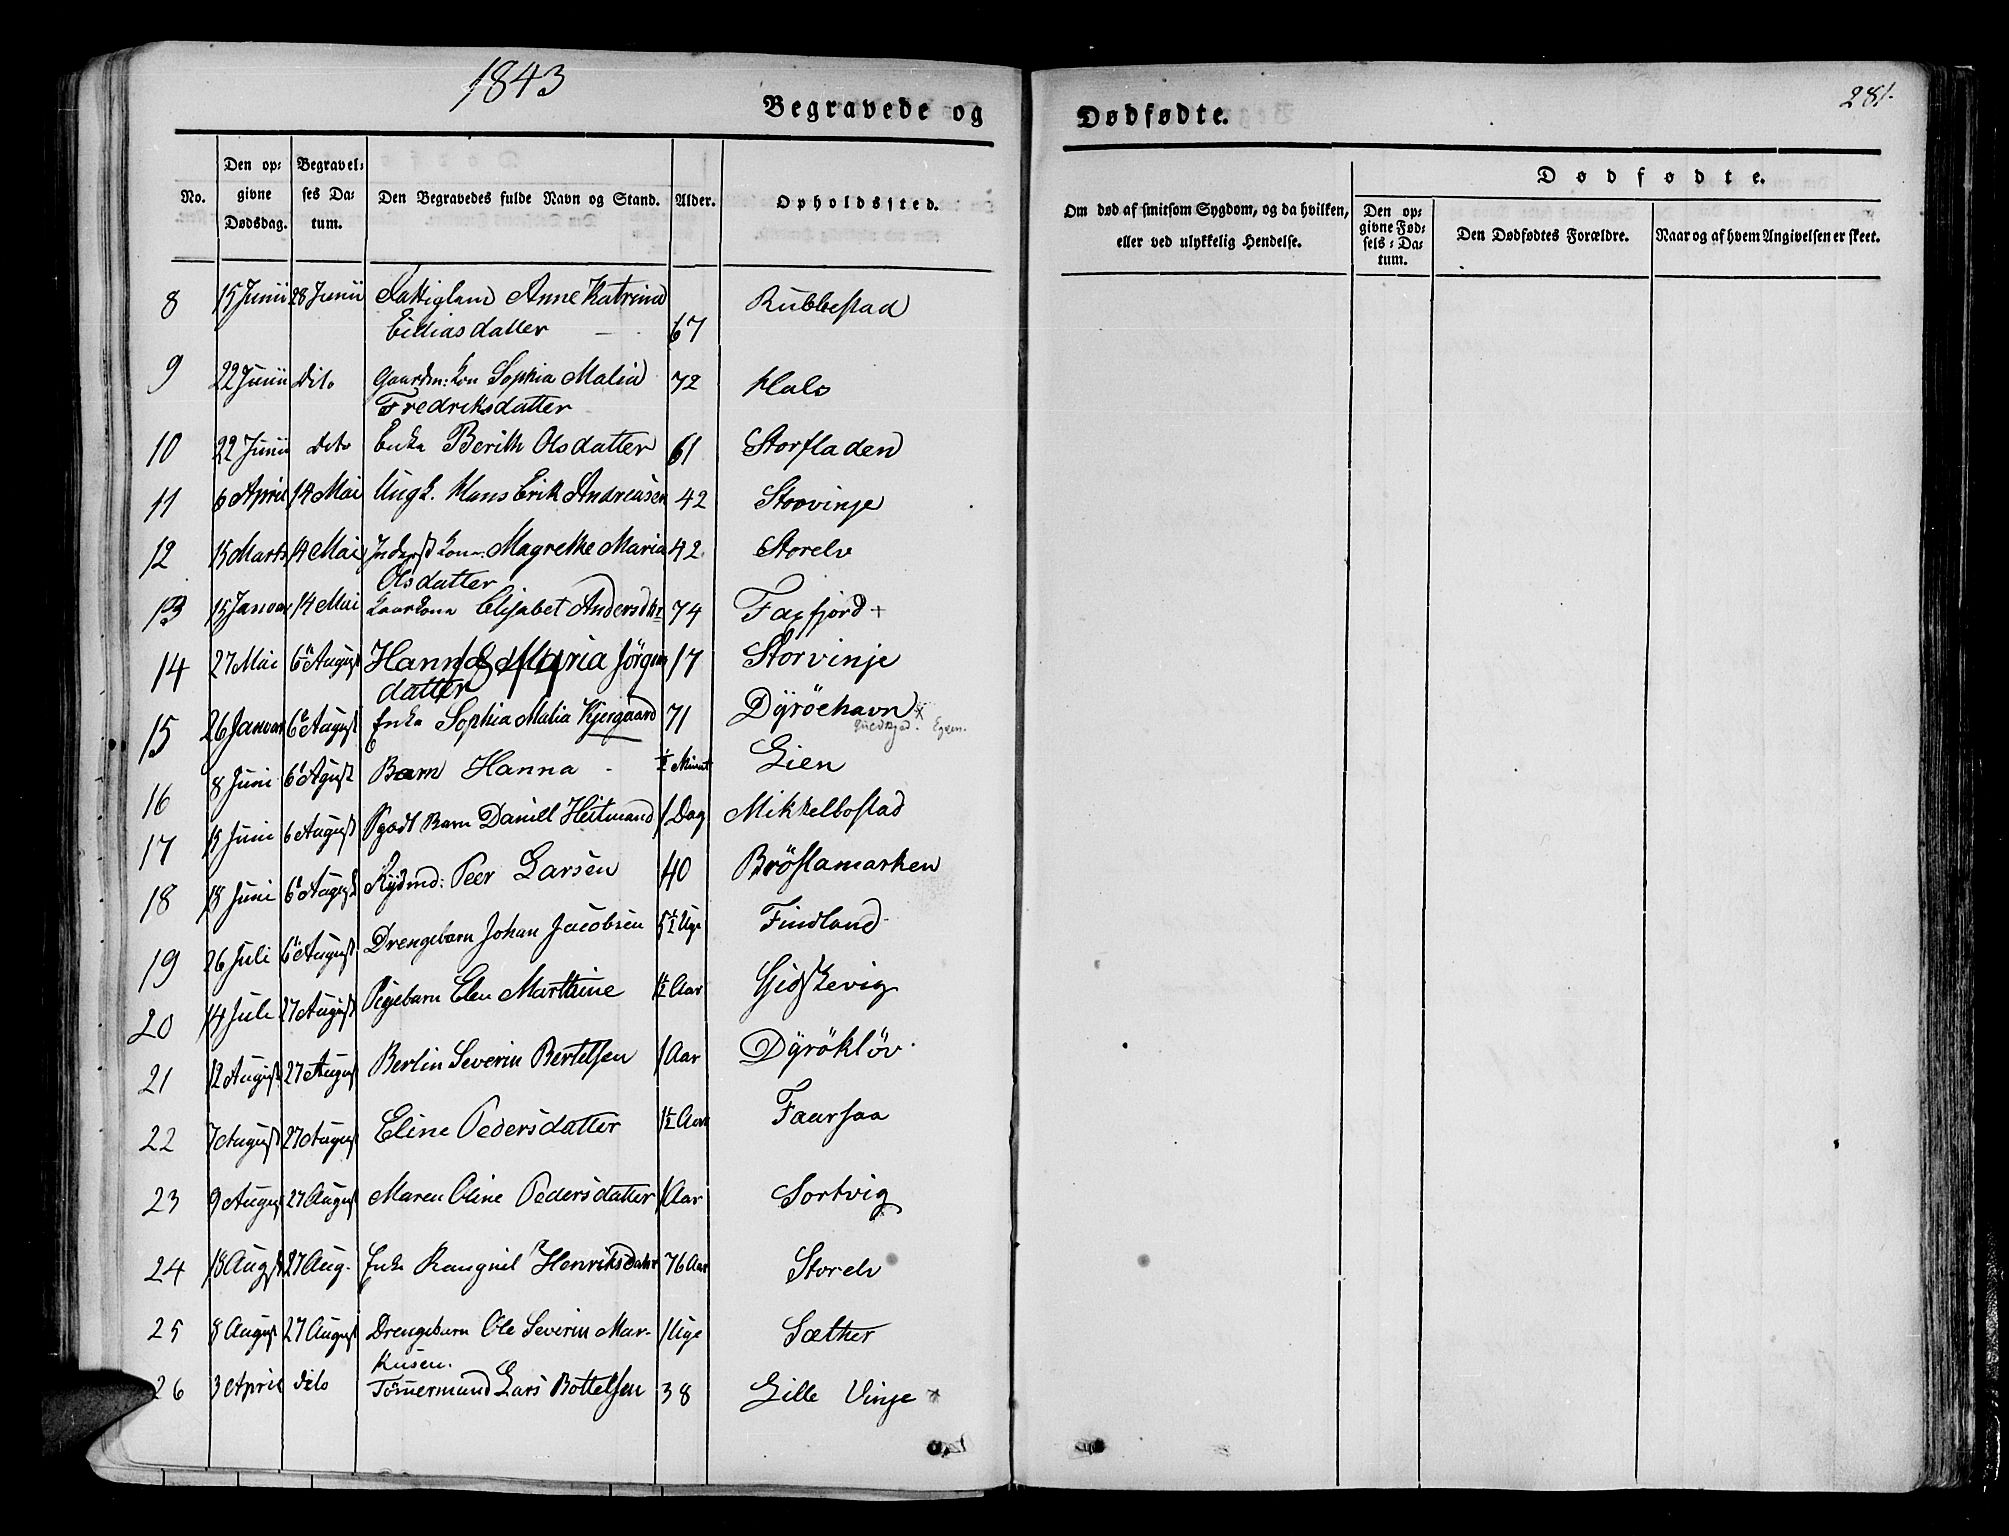 1843
Begravede og
Dødfødte.
281.
No.
Den opgivne Dødsdag.
Begravelses Datum.
Den Begravedes fulde Navn og Stand.
Alder.
Opholdssted.
Om død af smitsom Sygdom, og da hvilken, eller ved ulykkelig Hendelse.
Dødfødte.
Den opgivne Fødsels-Datum.
Den Dødfødtes Forældre.
Naar og af hvem Angivelsen er skeet.
8 15 Junii 28 Junii Anne Katrina 67 Rubbestad
Eliasdatter
9 22 Junii Dito Gaardm: Kon Sophia Malia 72 Hals
Fredriksdatter
10 22 Junii dito Enke Berith Olsdatter 61 Storfladen
11 6 April 14 Mai Ungk. Hans Erik Andreasen 42 Storvinje
12 15 Marts 14 Mai Inderst Kone: Magrethe Maria 42 Storelv
Olsdatter
13 15 Januar 14 Mai Kaarkona Elisabet Andersdtr 74 Faxfjord +
14 27 Mai 6 August Hanna Maria Jörgens 17 Storvinje
datter
15 26 Januar 6 August Enke Sophia Malia Kjergaard 71 Dÿröehavn x
16 8 Juni 6 August Barn Hanna ½ Minut Lien
17 15 Juni 6 August Daniell Heitmand 1 Dag Mikkelbostad
18 18 Juni 6 August Rydmd: Peer Larsen 40 Bröstamarken
19 26 Juli 6 August Drengebarn Johan Jacobsen 5½ Uge Findland
20 14 Juli 27 August Pigebarn Elen Marthine 1½ Aar Gidskevig
21 12 August 27 August Berlin Severin Bertelsen 1 Aar Dÿrökløv
22 7 August 27 August Eline Pedersdatter 1½ Aar Faarsaa
23 9 August 27 August Maren Oline Pedersdatter 1 Aar Sortvig
24 18 Augst 27 Aug. Enke Rangnil Henriksdatr 76 Aar Storelv
25 8 August 27 August Drengebarn Ole Severin Mar- 1 Uge Sæther
kusen.
26 3 April dito Tömermand Lars Bottelsen 38 Lille Vinje x